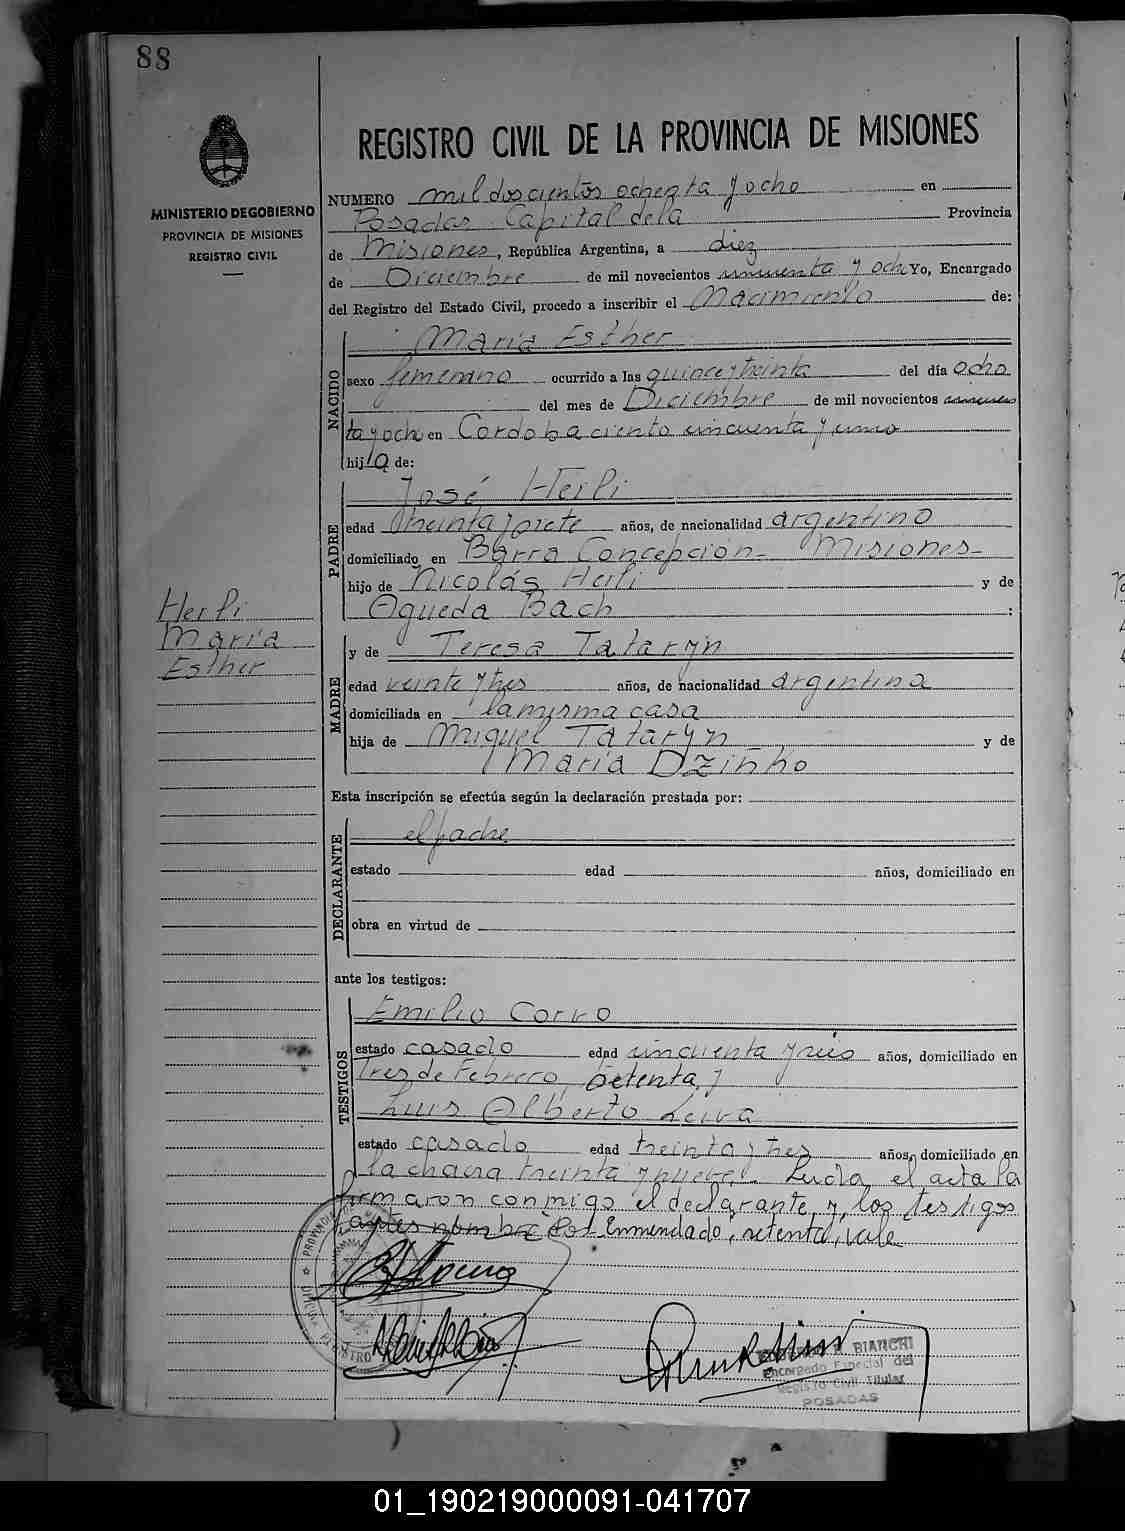 88
REGISTRO CIVIL DE LA PROVINCIA DE MISIONES
MINISTERIO DE GOBIERNO
PROVINCIA DE MISIONES
REGISTRO CIVIL
NUMERO mil doscientos ochenta y ocho en
Posadas Capital de la Provincia
de Misiones, República Argentina, a diez
de Diciembre de mil novecientos cincuenta y ocho Yo, Encargado
del Registro del Estado Civil, procedo a inscribir el Nacimiento de:
NACIDO
María Esther
sexo femenino ocurrido a las quince y treinta del día ocho
del mes de Diciembre de mil novecientos cincuen
ta y ocho en Cordoba ciento cincuenta y uno
hija de:
PADRE
José Heili
edad treinta y siete años, de nacionalidad argentino
domiciliado en Barra Concepción- Misiones-
hijo de Nicolás Heili y de
Agueda Bach :
Heili
María
Esther
MADRE
y de Teresa Tataryn
edad veinte y tres años, de nacionalidad argentina
domiciliada en la misma casa
hija de Miguel Tataryn y de
María Dzinho
Esta inscripción se efectúa según la declaración prestada por:
DECLARANTE
el padre
estado edad años, domiciliado en
obra en virtud de
ante los testigos:
TESTIGOS
Emilio Corro
estado casado edad cincuenta y seis años, domiciliado en
Tres de Febrero, setenta, y
Luis Alberto Leiva
estado casado edad treinta y tres años, domiciliado en
la chacra treinta y nueve.- Leida el acta la
firmaron conmigo el declarante, y, los testigos
nombrados Enmendado, setenta, vale
BIANCHI
Encargado Especial del
Registro Civil Titular
POSADAS
01_190219000091-041707